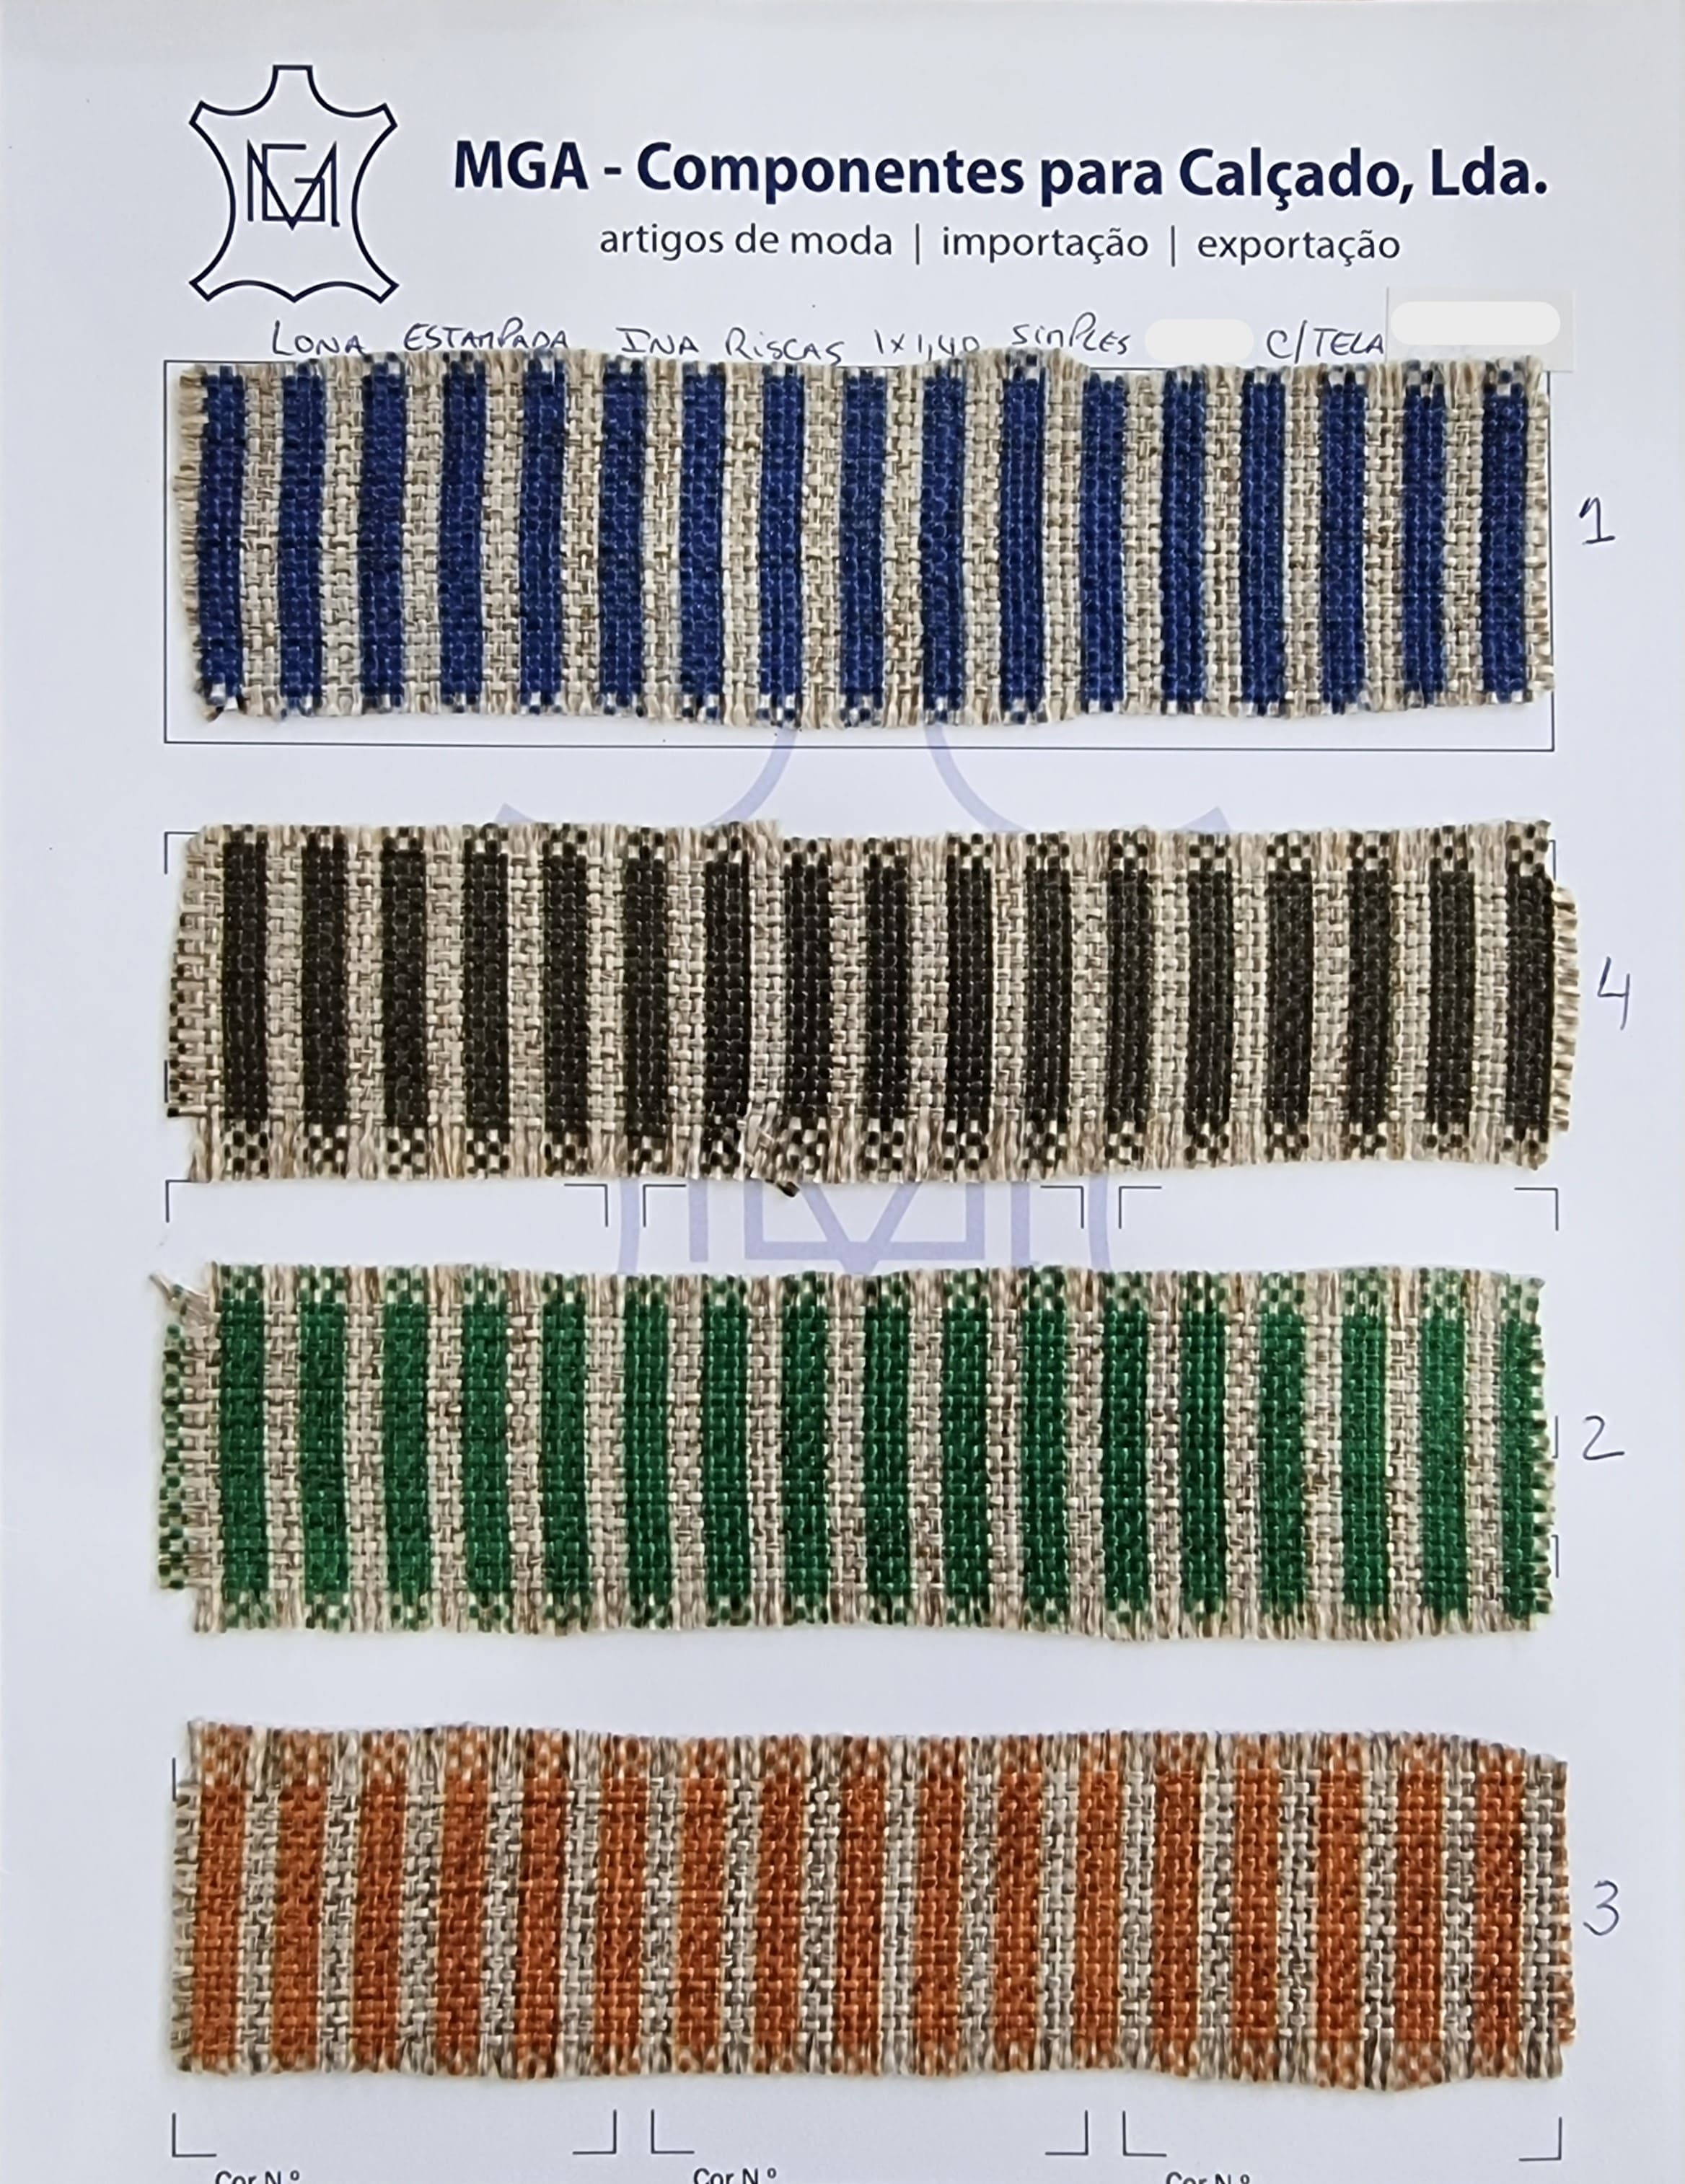 MGA
MGA - Componentes para Calçado, Lda.
artigos de moda | importação | exportação
LONA ESTAMPADA INA RISCAS 1x1,40 SIMPLES C/TELA
1
4
2
3
Cor N.º Cor N.º Cor N.º